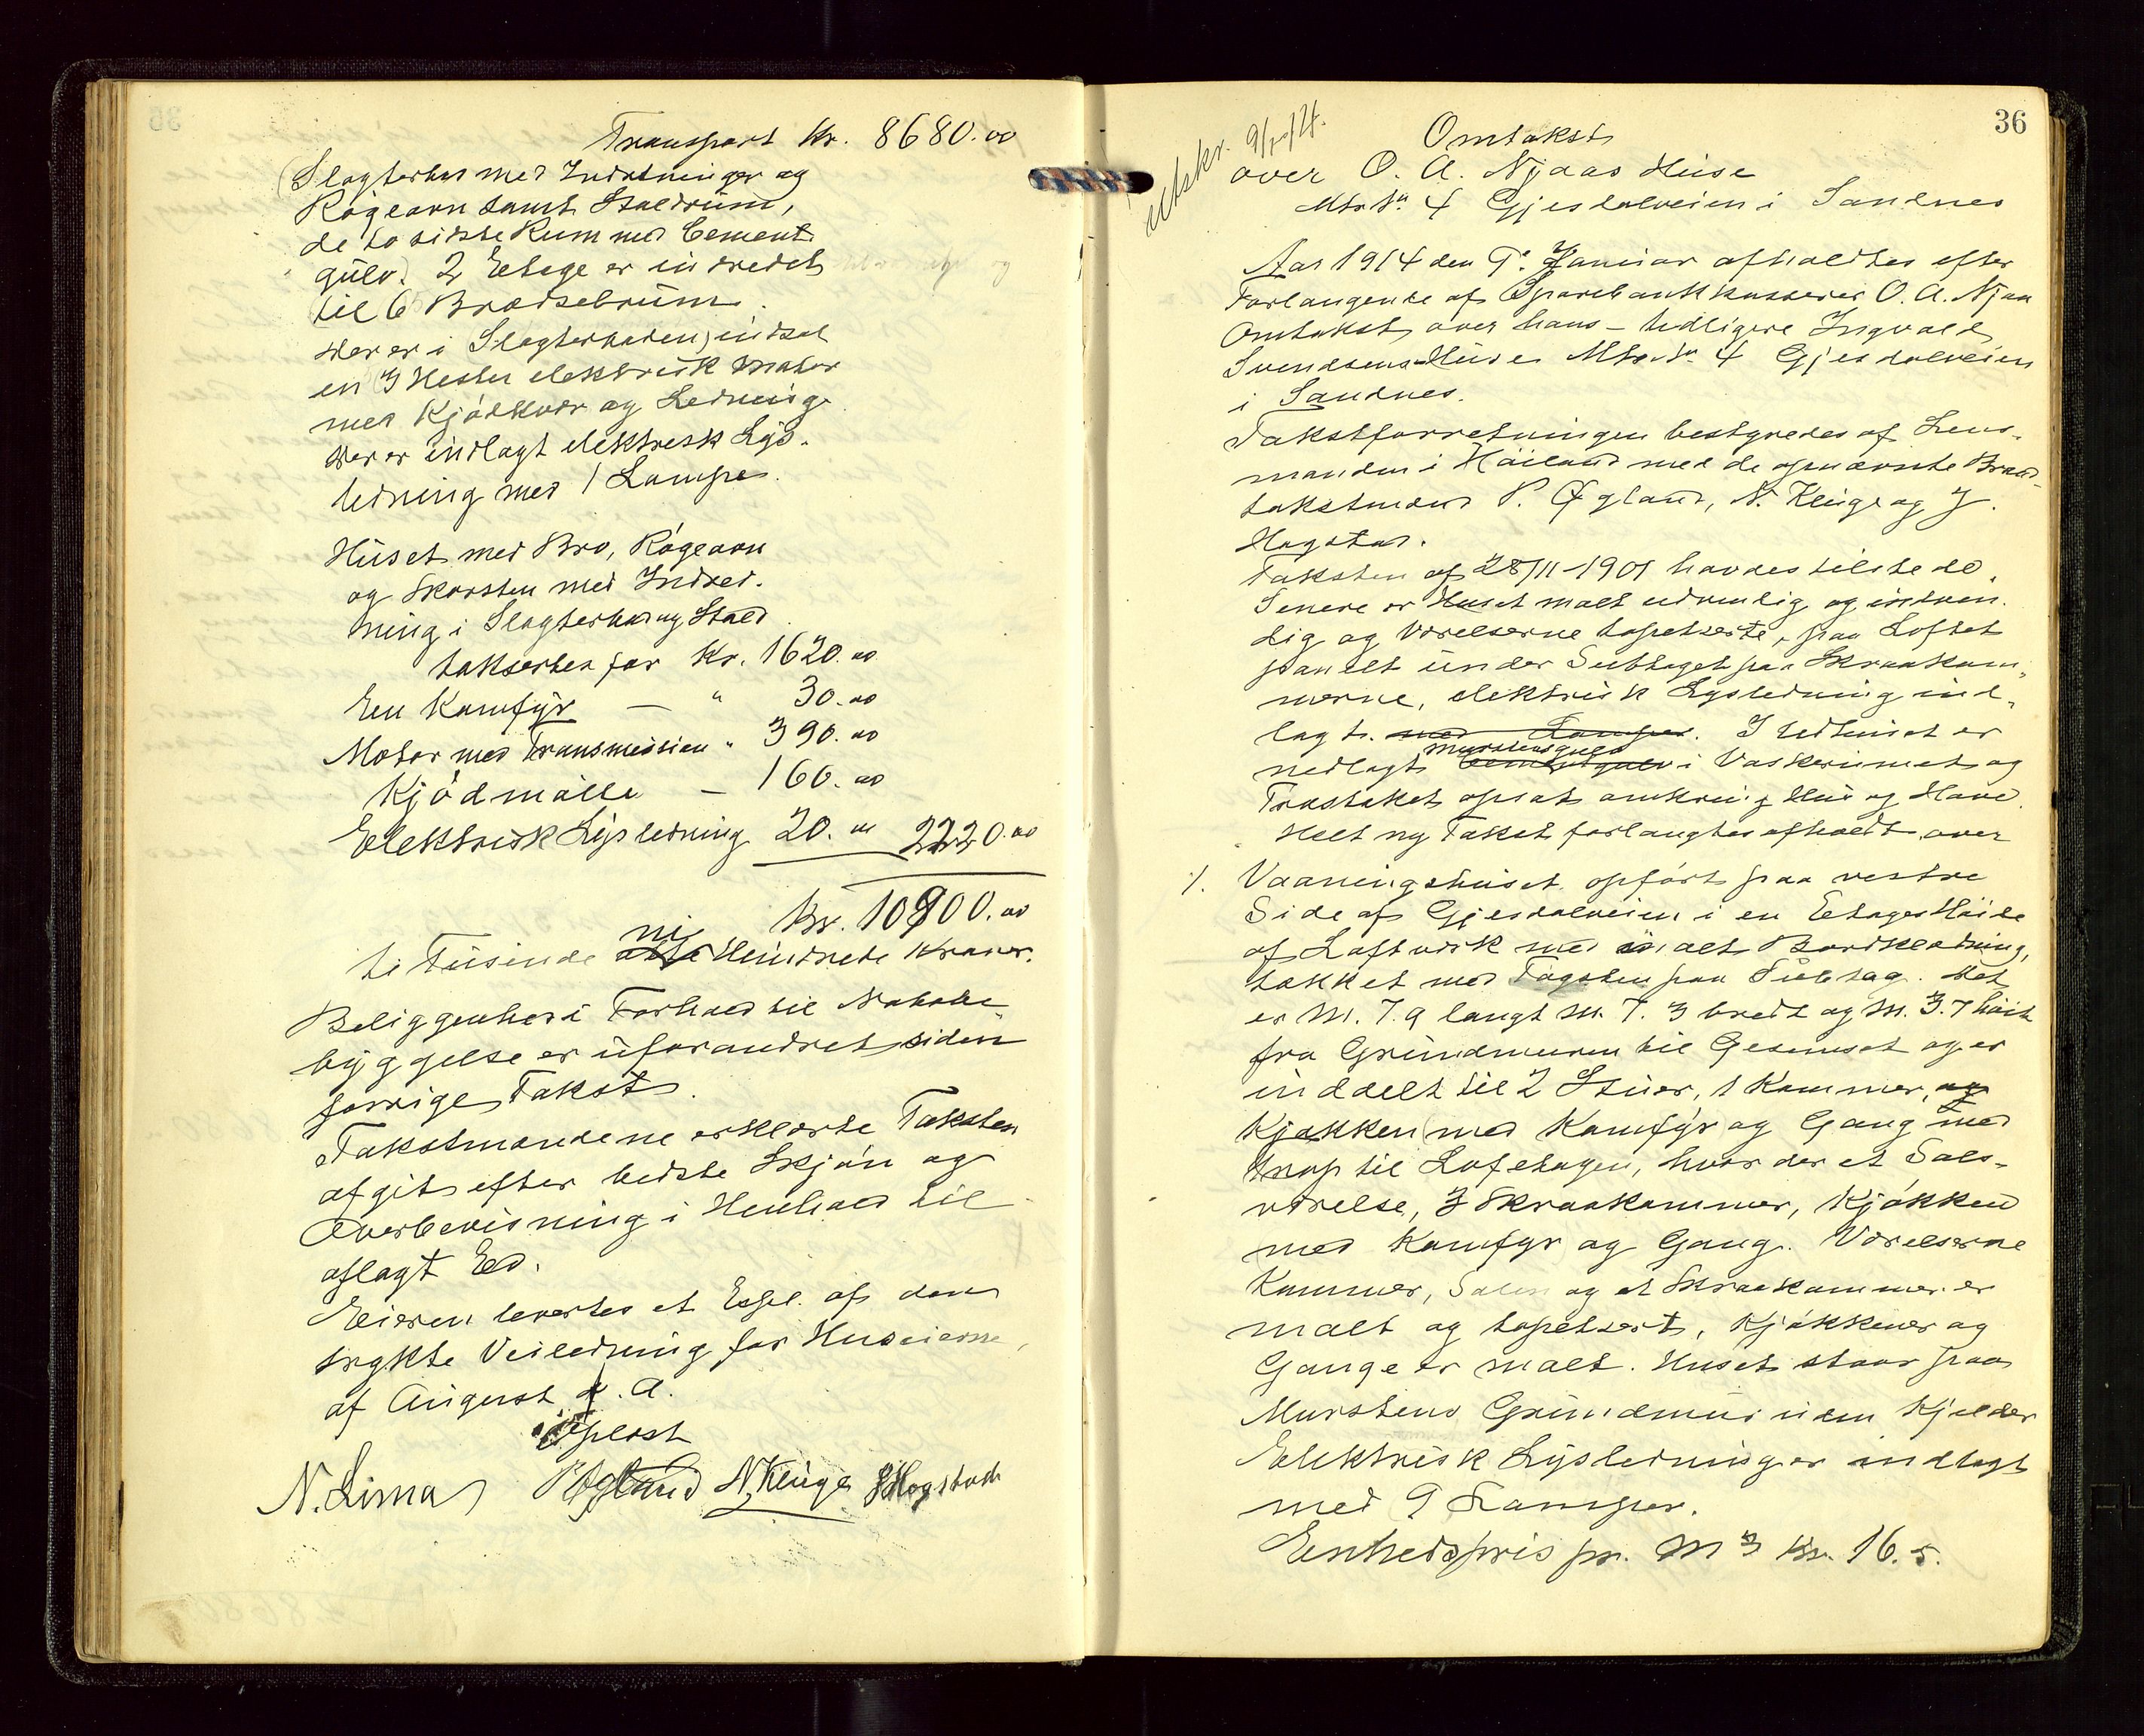 Transport Kr. 8680.00
(Slagterhus med Indretninger og
Rögeovn samt Staldrum,
de to sidste Rum med Cement
gulv). 2 Etage er indredet
til 6 Brædsebrum.
Der er i Slagterboden indsat
en 3 Hester elektrisk Motor
med Kjödkvær og Ledninge
Der er indlagt elektrisk Lys-
ledning med 1 Lampe.
Huset med Bro, Rögeovn
og Skorsten med Indred-
ning i Slagterhus og Stald
takserter for Kr. 1620.00
En Komfyr — " 30.00
Motor med Transmission " 390.00
Kjödmölle — 160.00
Elektrisk Lysledning 20.00 2220.00
Kr. 10900.00
ni
ti Tusinde otte Hundrede Kroner.
Beliggenhed i Forhold til Nabobe-
byggelse er uforandret siden
forrige Takst.
Takstmændene erklærte Taksten
afgit efter bedste Skjön og
Overbevisning i Henhold til
aflagt Ed.
Eieren levertes et Expl. af den
trykte Veiledning for Huseierne,
af August f. A.
Oplæst
N. Lima P Øgland N. Kluge J Hogstad
36
Utskr. 9/2 14.
Omtakst
over O. A. Njaas Huse
Mtr. Nr. 4 Gjesdalveien i Sandnes
Aar 1914 den 9. Januar afholdtes efter
Forlangende af Sparebankkasserer O. A. Njaa
Omtakst over hans – tidligere Ingvald
Svendsens Huse Mtr. Nr. 4 Gjesdalveien
i Sandnes.
Takstforretningen bestyredes af Lens-
manden i Höiland med de opnævnte Brand-
takstmænd P. Øgland, N. Kluge og J.
Hogstad.
Taksten af 28/11-1901 havdes tilstede.
Senere er Huset malt udvendig og indven-
dig og Værelserne tapetserte, paa Loftet
panelt under Sutaget paa Skraakam-
merne, elektrisk Lysledning ind-
lagt. med Lamper. I Udhuset er
Murstensgulv
nedlagt Cementgulv i Vaskerummet og
Træstaket opsat omkring Hus og Have.
Helt ny Takst forlangtes afholdt over
1. Vaaningshuset opfört paa vestre
Side af Gjesdalveien i en Etages Höide
af Laftverk med malt Bordklædning,
tækket med Tagsten paa Sutag. Det
er M. 7.9 langt M. 7.3 bredt og M. 3.7 höit
fra Grundmuren til Gesimset og er
inddelt til 2 Stuer, 1 Kammer, og
Kjøkken med Komfyr og Gang med
trap til Loftetagen, hvor der et Sals-
værelse, 3 Skraakammer, Kjökken
med Komfyr og Gang. Værelserne
Kammer, Salen og et Skraakammer er
malt og tapetsert, Kjökkener og
Gange er malt. Huset staar paa
Murstens Grundmur uden Kjelder
Elektrisk Lysledning er indlagt
med 9 Lamper.
Enhedspris pr. M3 Kr. 16.5.